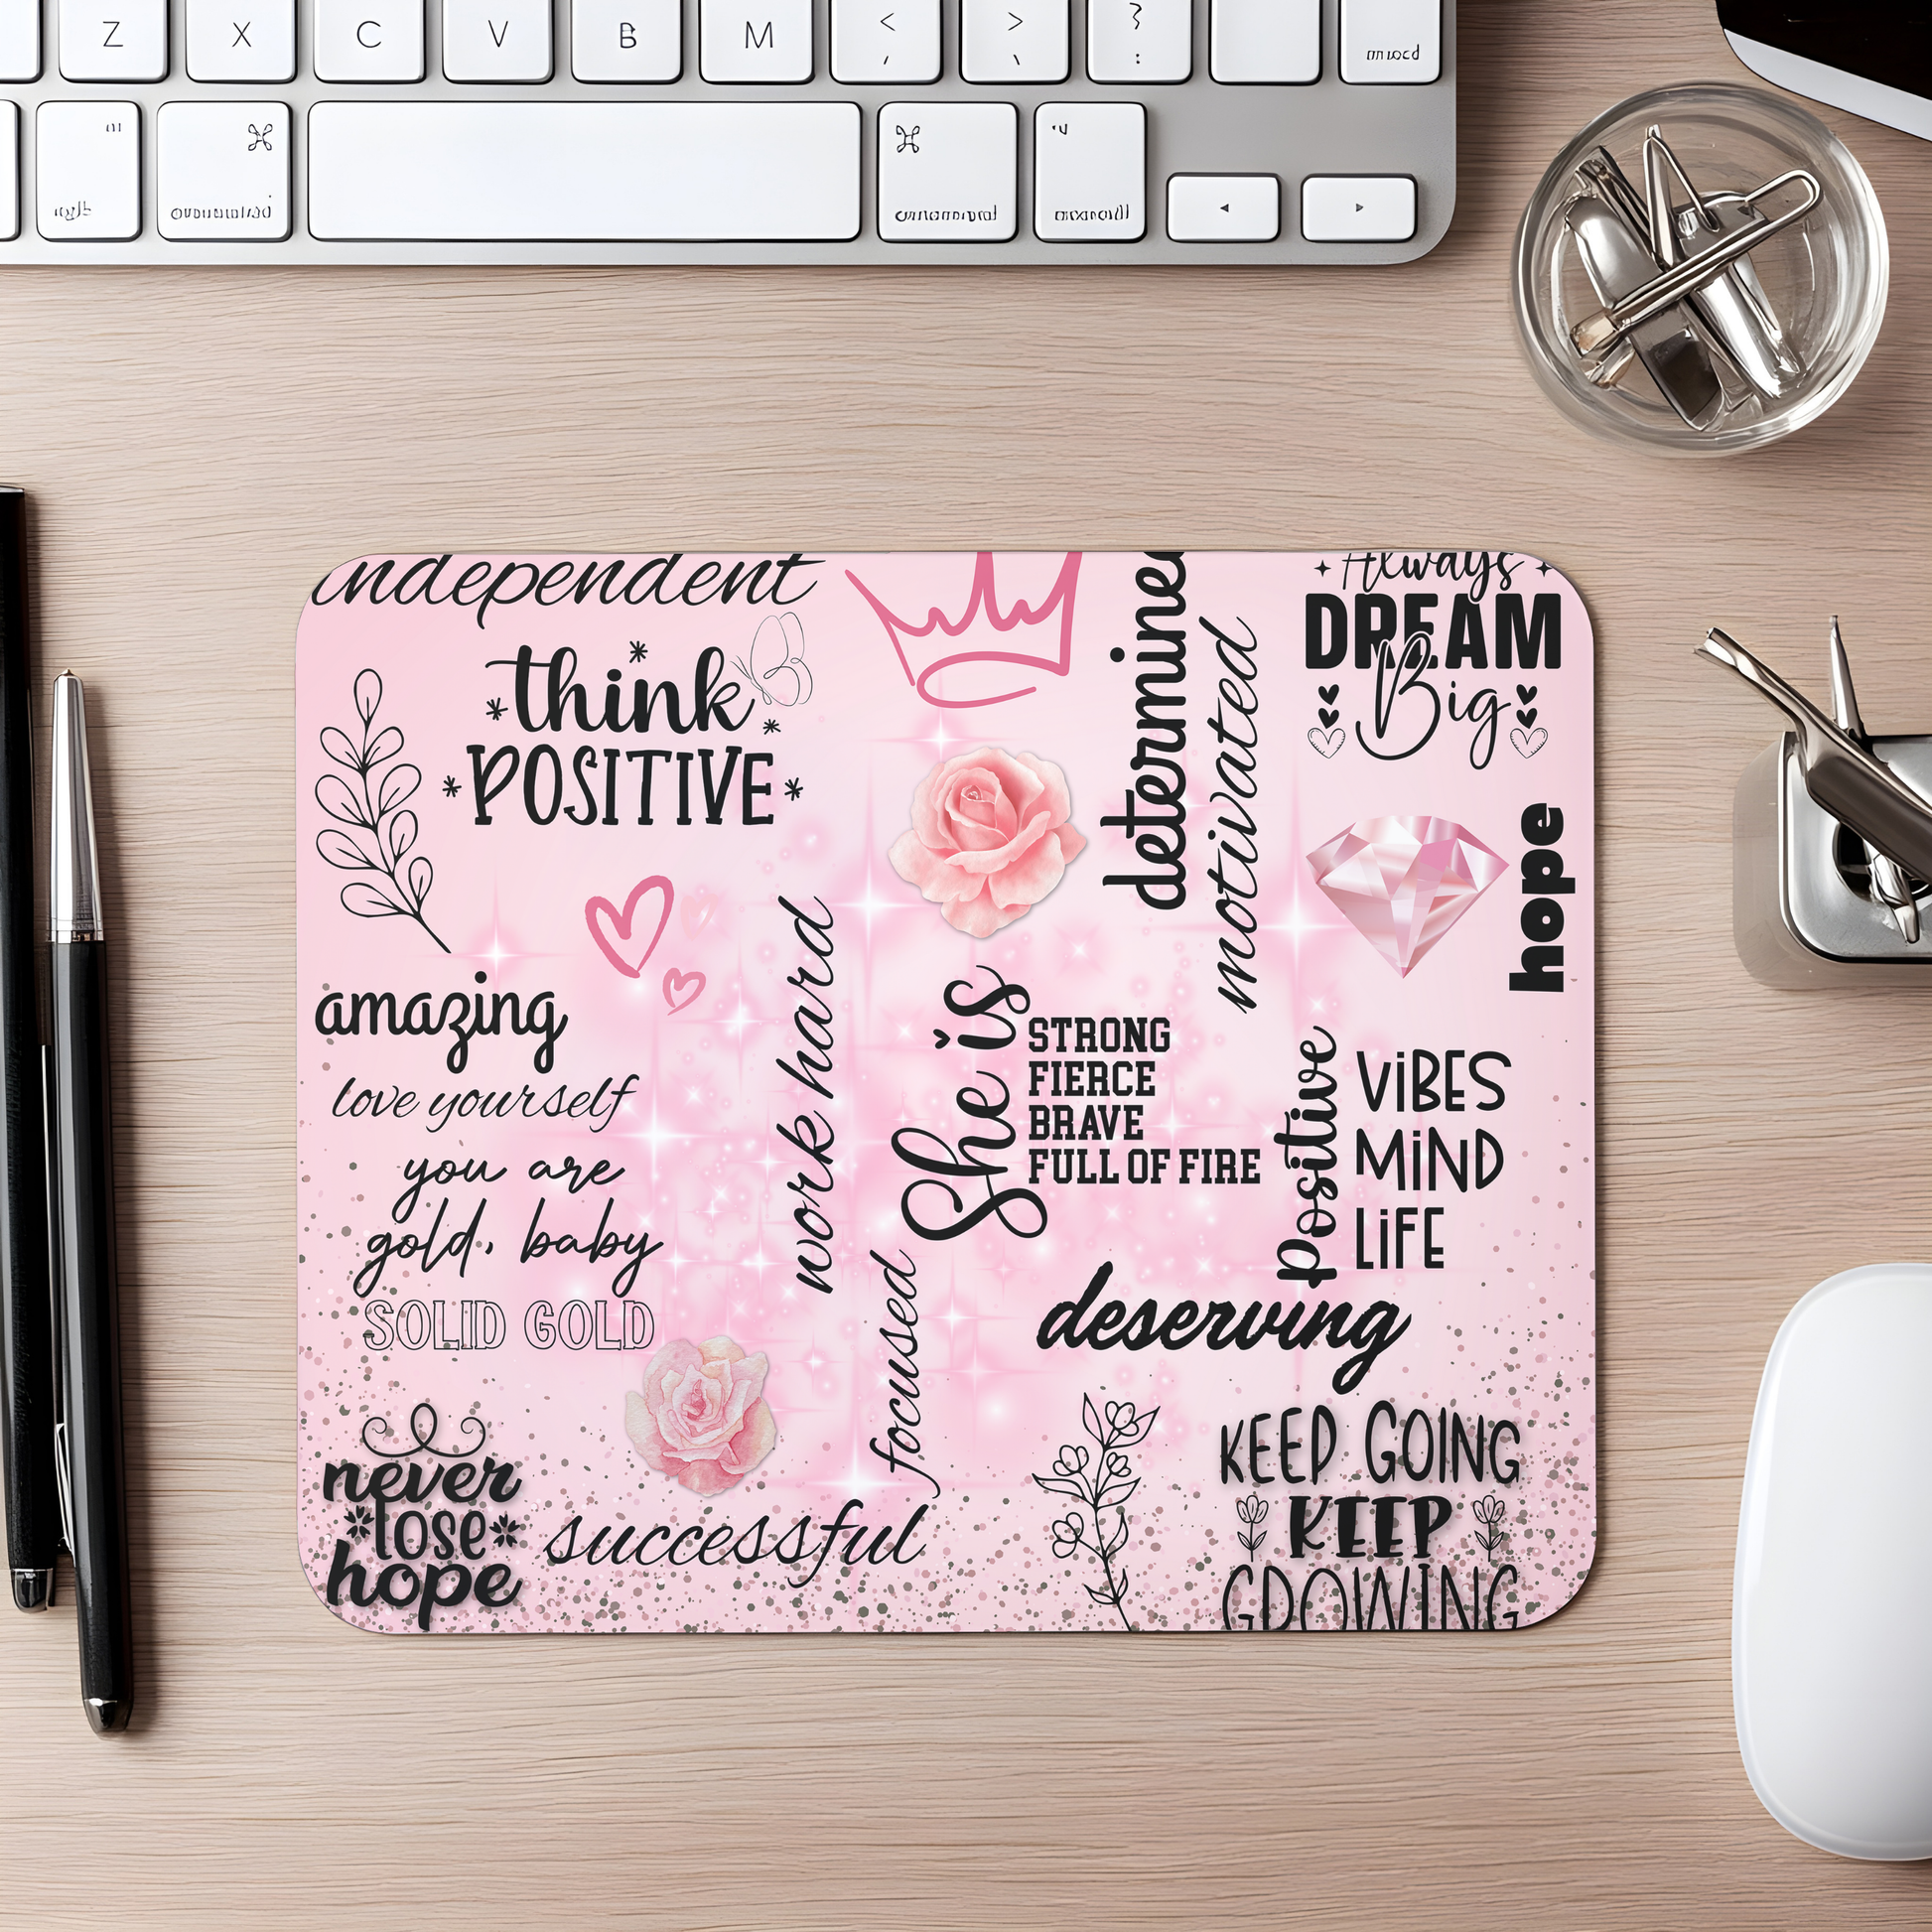 Z X C V B M < >
, ?
:
independent
think
POSITIVE
determined
motivated
Always
DREAM
Big
hope
amazing
love yourself
you are
gold, baby
SOLID GOLD
work hard
She is
STRONG
FIERCE
BRAVE
FULL OF FIRE
positive
VIBES
MIND
LIFE
focused
deserving
never
lose
hope
successful
KEEP GOING
KEEP
GROWING